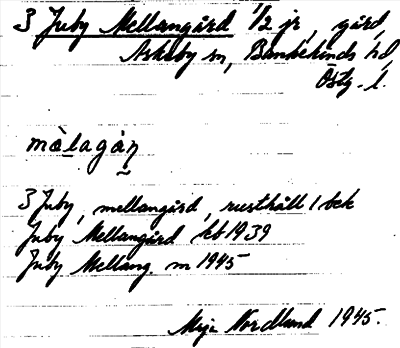 3 Juby Mellangård 1/2 jr, gård,
Askeby sn, Bankekinds hd,
Östg. l.
màlagàṇ
3 Juby, mellangård, rusthåll 1 bek
Juby Mellangård kb 1939
Juby Mellang. m 1945
Maja Nordlund 1945.